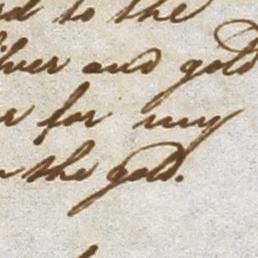 to the
silver and gold
for my
the gold.